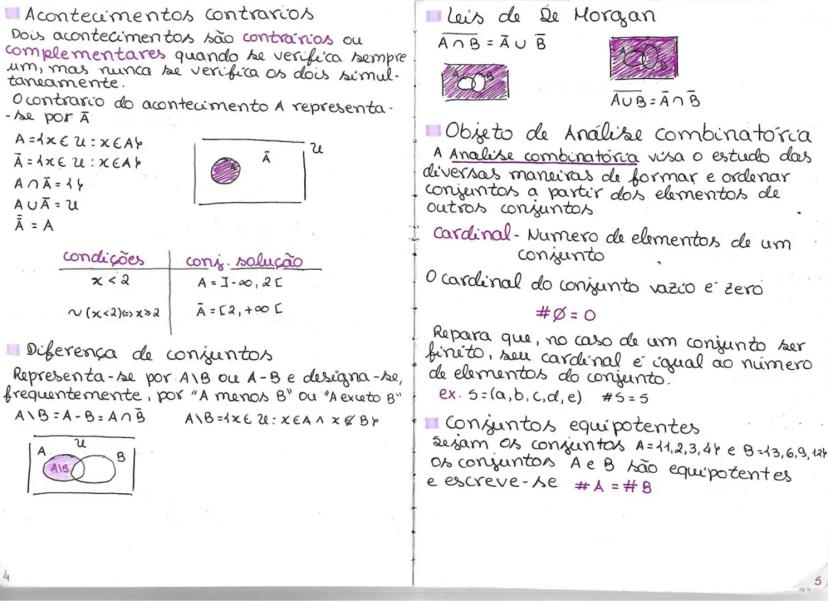 Acontecimentos contrarios
Dois acontecimentos são contrários ou
complementares quando se verifica sempre
um, mas nunca se verifica os dois simul-
taneamente.
O contrario do acontecimento A representa-
-se por Ā
A={x∈U:x∈A}
Ā={x∈U:x∈A}
A∩Ā={}
A∪Ā=U
Ā̄=A
Ā
U
condições conj. solução
x<2 A=]-∞,2[
~(x<2)⇔x≥2 Ā=[2,+∞[
Diferença de conjuntos
Representa-se por A\B ou A-B e designa-se,
frequentemente, por "A menos B" ou "A exceto B"
A\B=A-B=A∩B̄ A\B={x∈U:x∈A ∧ x∉B}
U
A
B
A\B
4
Leis de De Morgan
A̅∩̅B̅=Ā∪B̄
A B
A B
A̅∪̅B̅=Ā∩B̄
Objeto de Análise combinatória
A Analise combinatória visa o estudo das
diversas maneiras de formar e ordenar
conjuntos a partir dos elementos de
outros conjuntos
Cardinal - Numero de elementos de um
conjunto
O cardinal do conjunto vazio é zero
#∅=0
Repara que, no caso de um conjunto ser
finito, seu cardinal é igual ao número
de elementos do conjunto.
ex. S=(a,b,c,d,e) #S=5
Conjuntos equipotentes
Sejam os conjuntos A={1,2,3,4} e B={3,6,9,12}
Os conjuntos A e B são equipotentes
e escreve-se #A=#B
5